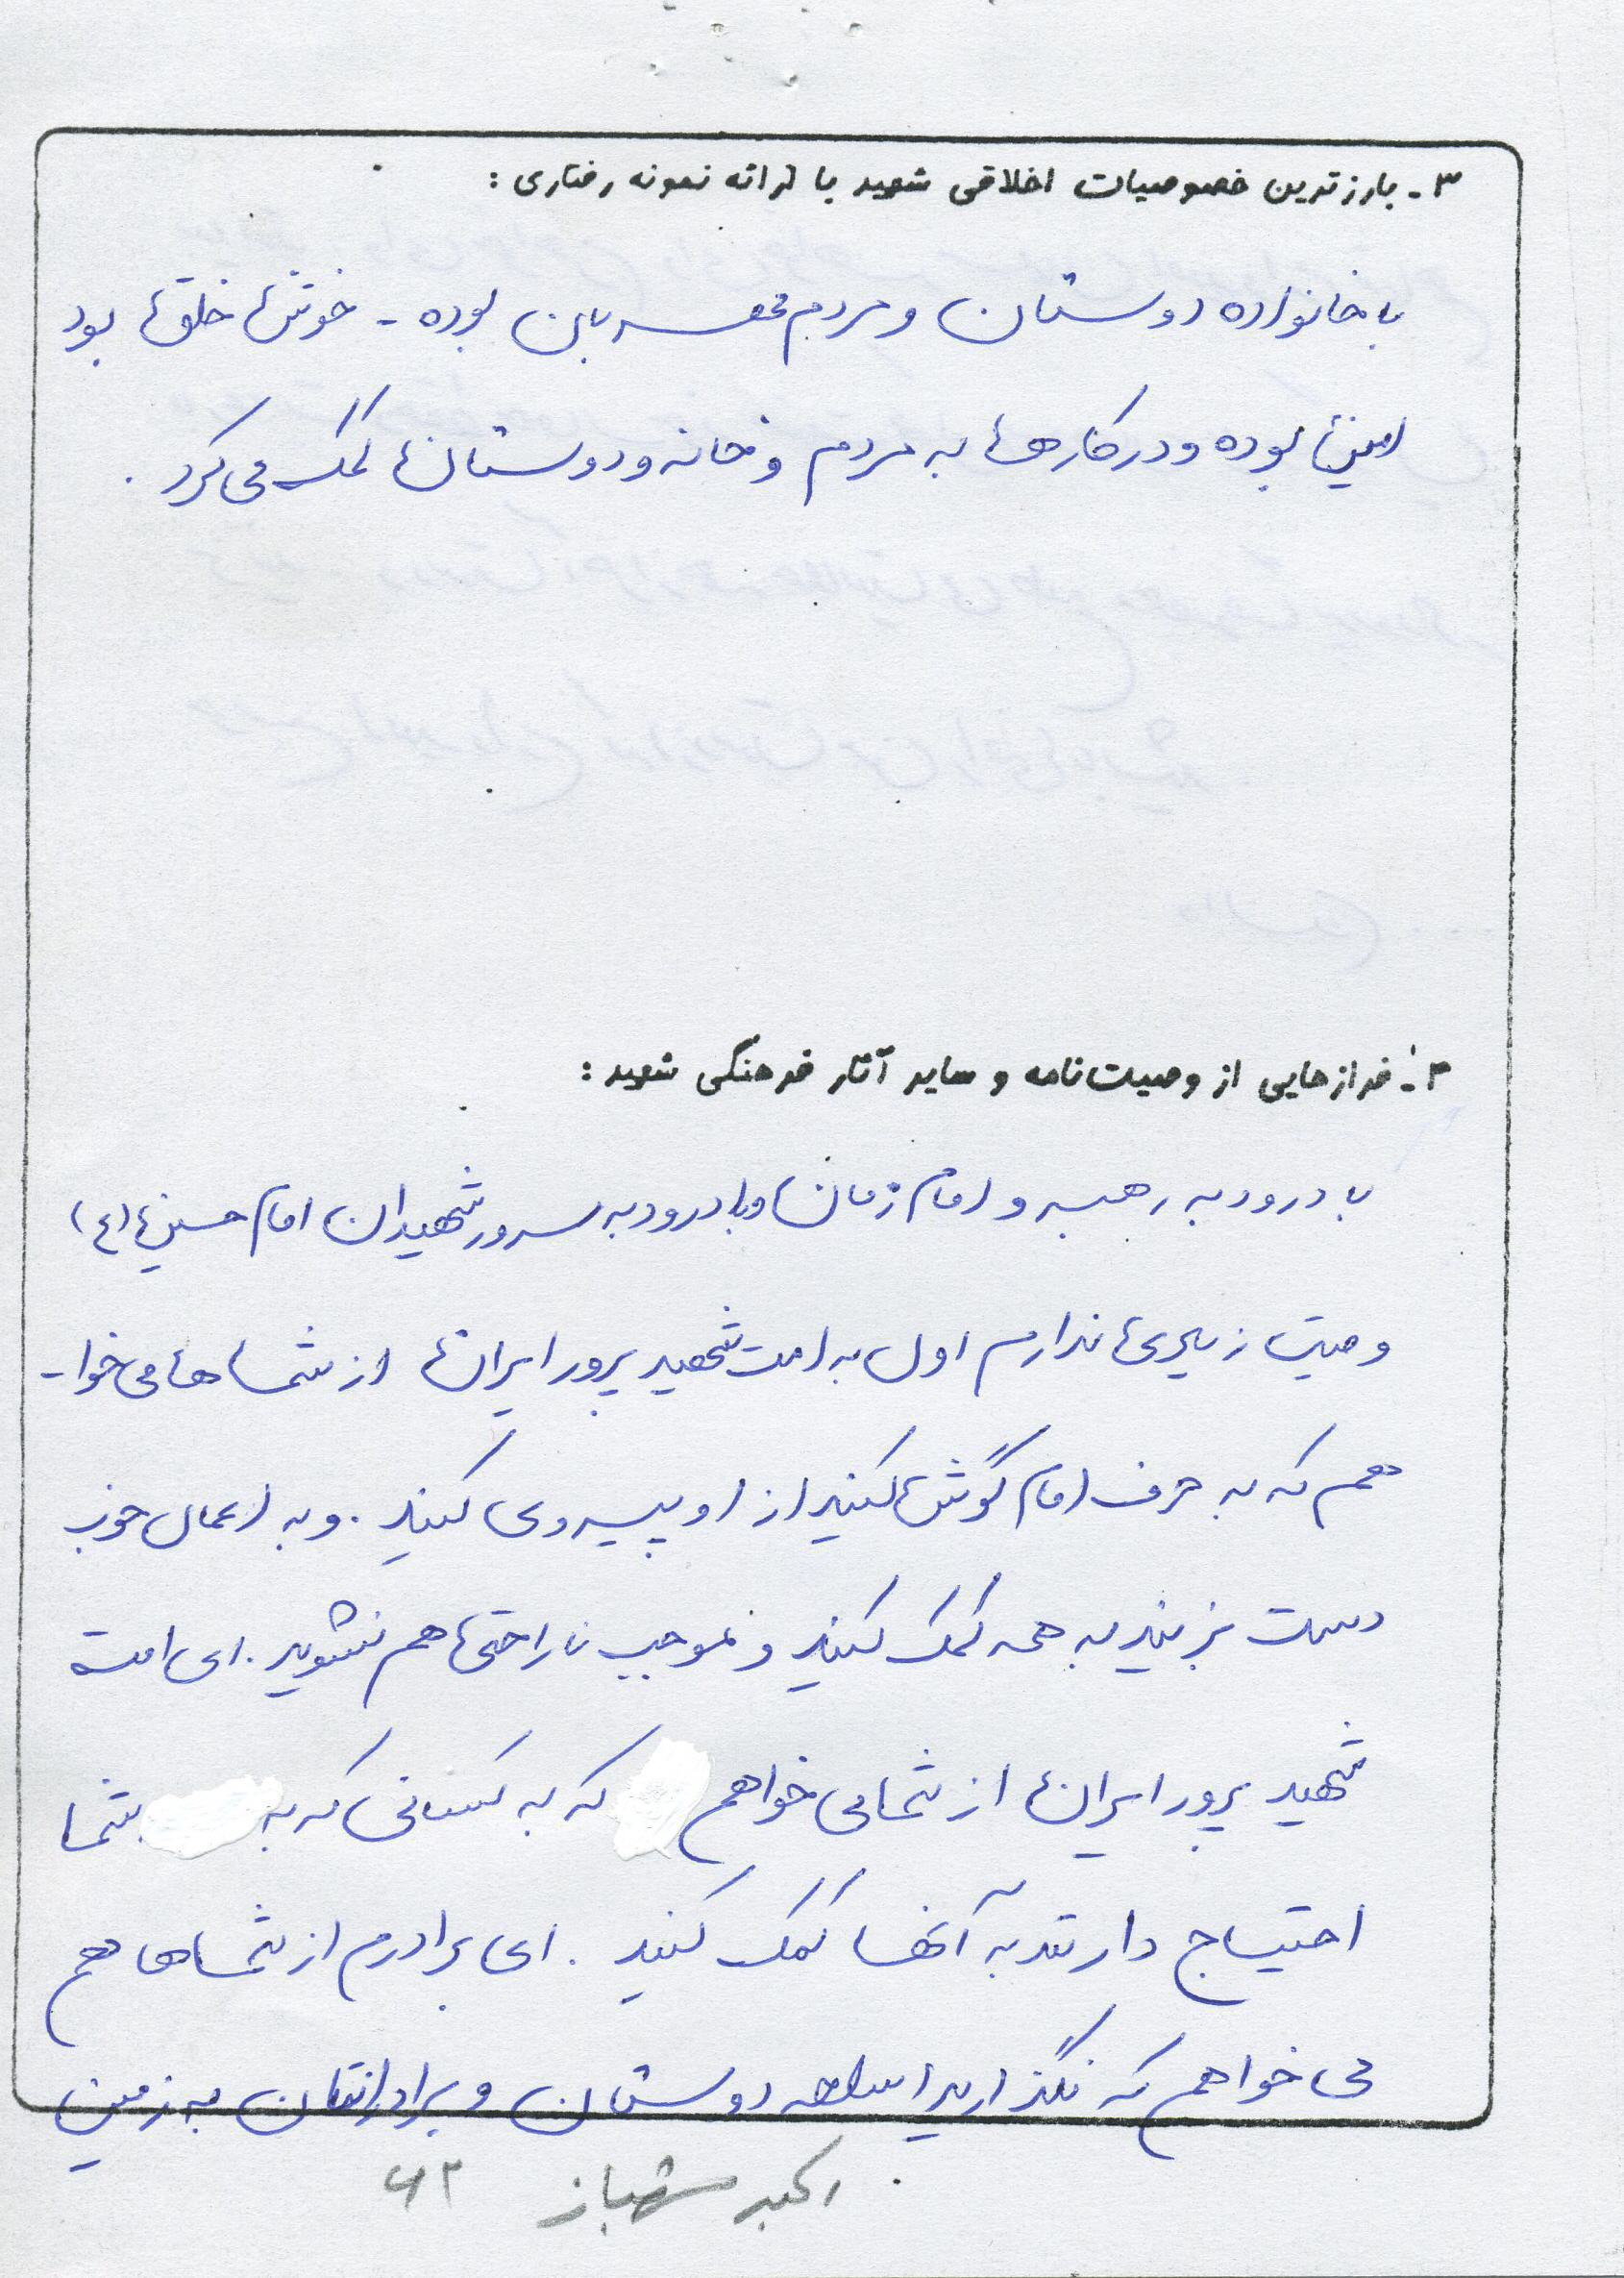 ۳- بارزترین خصوصیات اخلاقی شهید با ارائه نمونه رفتاری :
با خانواده دوستان و مردم مهربان بوده - خوش خلق بود
امین بوده و در کارها به مردم و خانه و دوستان کمک می کرد .
۴- فرازهایی از وصیت‌نامه و سایر آثار فرهنگی شهید :
با درود به رهبر و امام زمان و با درود به سرور شهیدان امام حسین (ع)
وصیت زیادی ندارم اول به امت شهید پرور ایران از شماها می خوا-
هم که به حرف امام گوش کنید از او پیروی کنید . و به اعمال خوب
دست بزنید به همه کمک کنید و موجب ناراحتی هم نشوید . ای امت
شهید پرور ایران از شما می خواهم که به کسانی که به شما
احتیاج دارند به آنها کمک کنید . ای برادرم از شماها هم
می خواهم که نگذارید اسلحه دوستان و برادرانتان به زمین
اکبر شهباز ۶۲